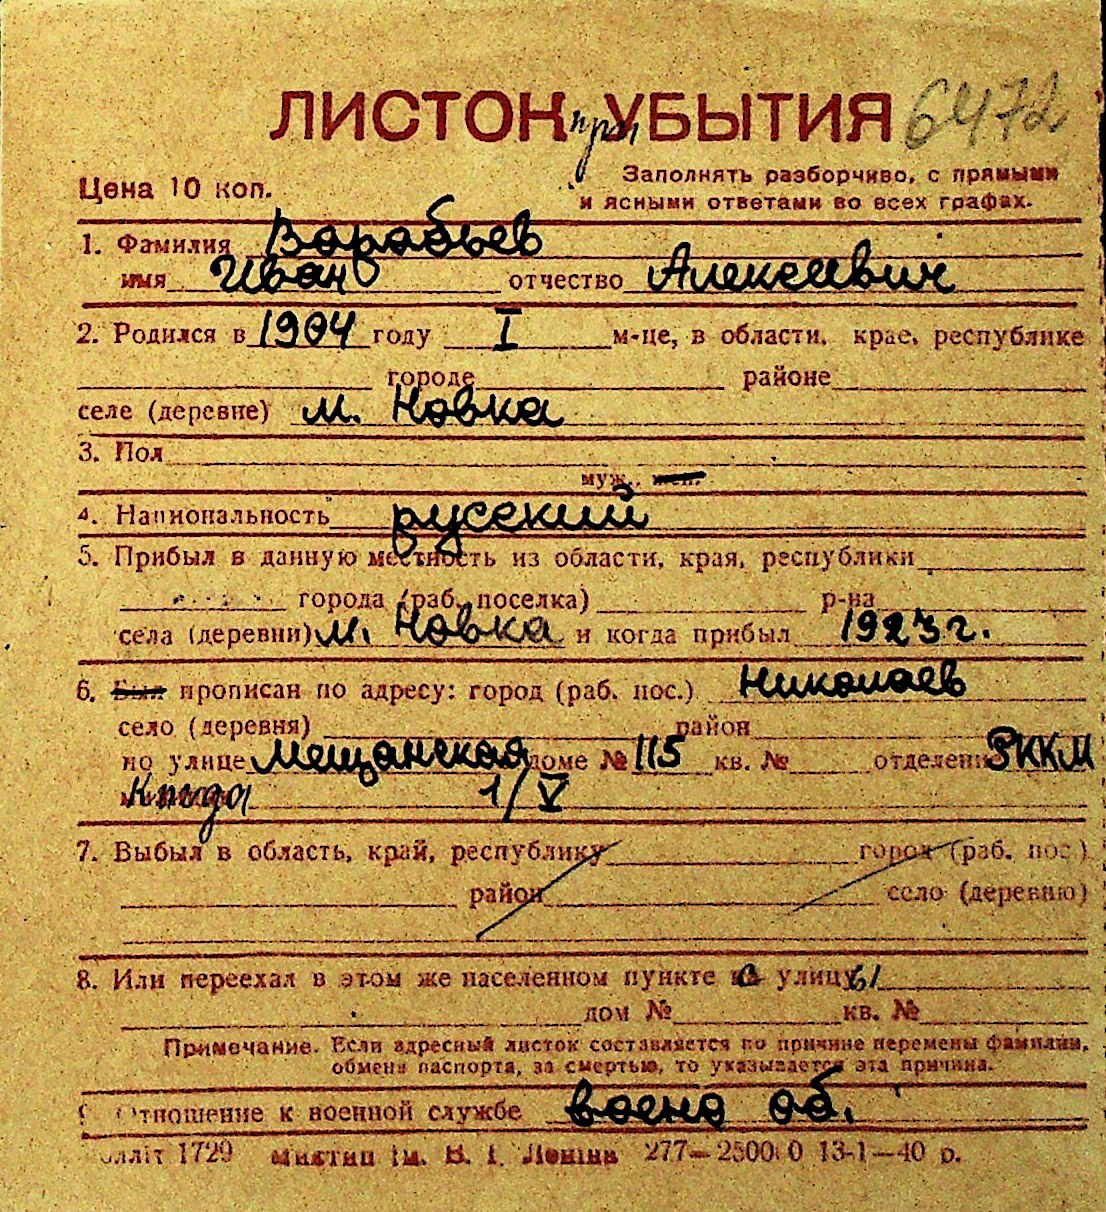 ЛИСТОК при УБЫТИЯ 6472
Цена 10 коп.
Заполнять разборчиво, с прямыми
и ясными ответами во всех графах.
1. Фамилия Воробьев
имя Иван отчество Алексеевич
2. Родился в 1904 году I м-це, в области, крае, республике
городе районе
селе (деревне) м. Новка
3. Пол
муж., жен.
4. Национальность русский
5. Прибыл в данную местность из области, края, республики
города (раб. поселка) р-на
села (деревни) м. Новка и когда прибыл 1923 г.
6. Был прописан по адресу: город (раб. пос.) Николаев
село (деревня) район
по улице Мещанская доме № 115 кв. № отделени РККМ
Когда 1/V
7. Выбыл в область, край, республику город (раб. пос.)
район село (деревню)
8. Или переехал в этом же населенном пункте с улицы
дом № кв. №
Примечание. Если адресный листок составляется по причине перемены фамилии,
обмена паспорта, за смертью, то указывается эта причина.
9 Отношение к военной службе воено об.
олліт 1729 Миктип ім. В. І. Леніна 277—25000 13-1—40 р.